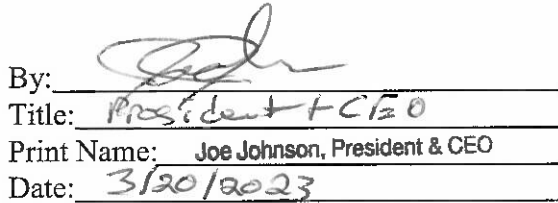 By:
Title: President + CEO
Print Name: Joe Johnson, President & CEO
Date: 3/20/2023